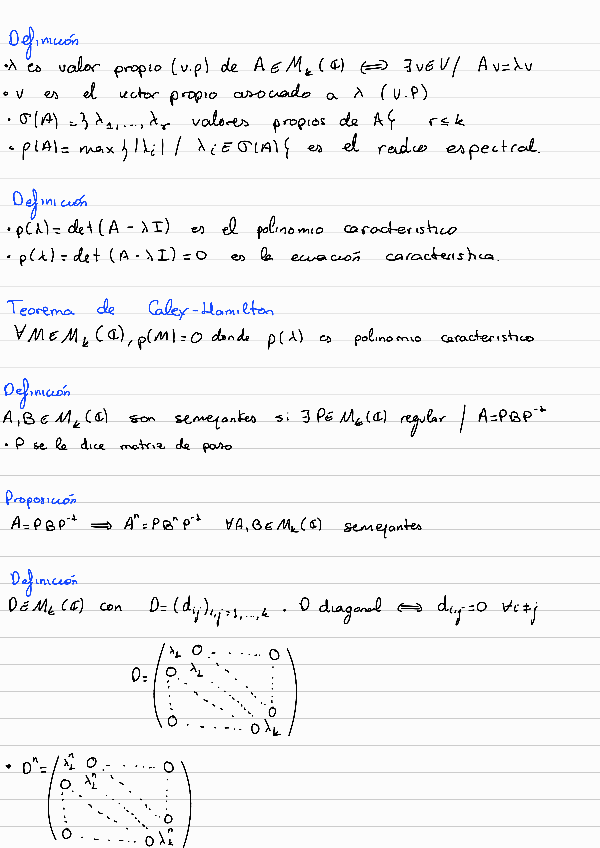 Definición
• λ es valor propio (v.p) de A∈M_k(ℂ) ⟺ ∃v∈V / Av=λv
• v es el vector propio asociado a λ (V.P)
• σ(A) = }λ_1,...,λ_r valores propios de A{ r≤k
• ρ(A) = max }|λ_i| / λ_i∈σ(A){ es el radio espectral.
Definición
• p(λ)=det(A-λI) es el polinomio caracteristico
• p(λ)=det(A-λI)=0 es la ecuación caracteristica.
Teorema de Caley-Hamilton
∀M∈M_k(ℂ), p(M)=0 donde p(λ) es polinomio caracteristico
Definición
A,B∈M_k(ℂ) son semejantes si ∃P∈M_k(ℂ) regular / A=PBP^-1
• P se le dice matriz de paso
Proposición
A=PBP^-1 ⟹ A^n=PB^nP^-1 ∀A,B∈M_k(ℂ) semejantes
Definición
D∈M_k(ℂ) con D=(d_ij)_i,j=1,...,k . D diagonal ⟺ d_ij=0 ∀i≠j
λ_1 0 ..... 0
D= 0 λ_2
0
0 ..... 0 λ_k
• D^n= λ_1^n 0 ..... 0
0 λ_2^n
0
0 ..... 0 λ_k^n